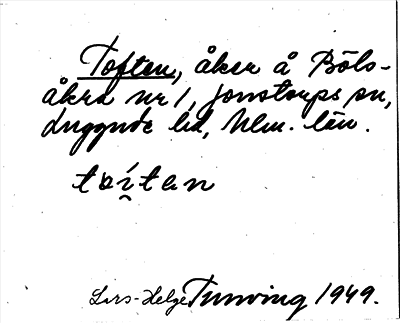 Toften, åker å Böls-
åkra nr 1, Jonstorps sn,
Luggude hd, Mlm. län.
Lars-Helge Tunving 1949.